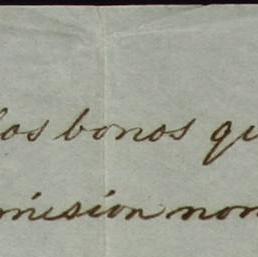 los bonos qu
misión nom